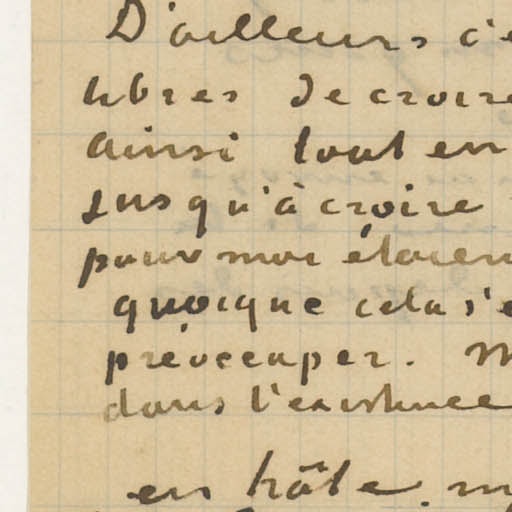 D'ailleurs c'e
libres de croire
ainsi tout en
jusqu'à croire
pour moi étaien
quoique cela s'e
préoccuper. M
dans l'existence
en hâte m